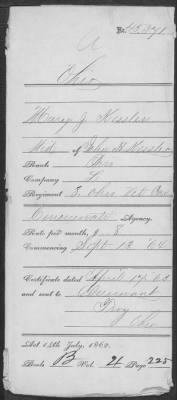 A
Ohio
Mary J. Kessler
Wid of John H. Kessler
Rank
Company L
Regiment 5. Ohio Vet Cav
Cincinnati Agency.
Rate per month, $ 8
Commencing Sept 12 '64
Certificate dated April 17 '65
and sent to
Troy
Ohio
Act 14th July, 1862.
Book B Vol. 4 Page 225